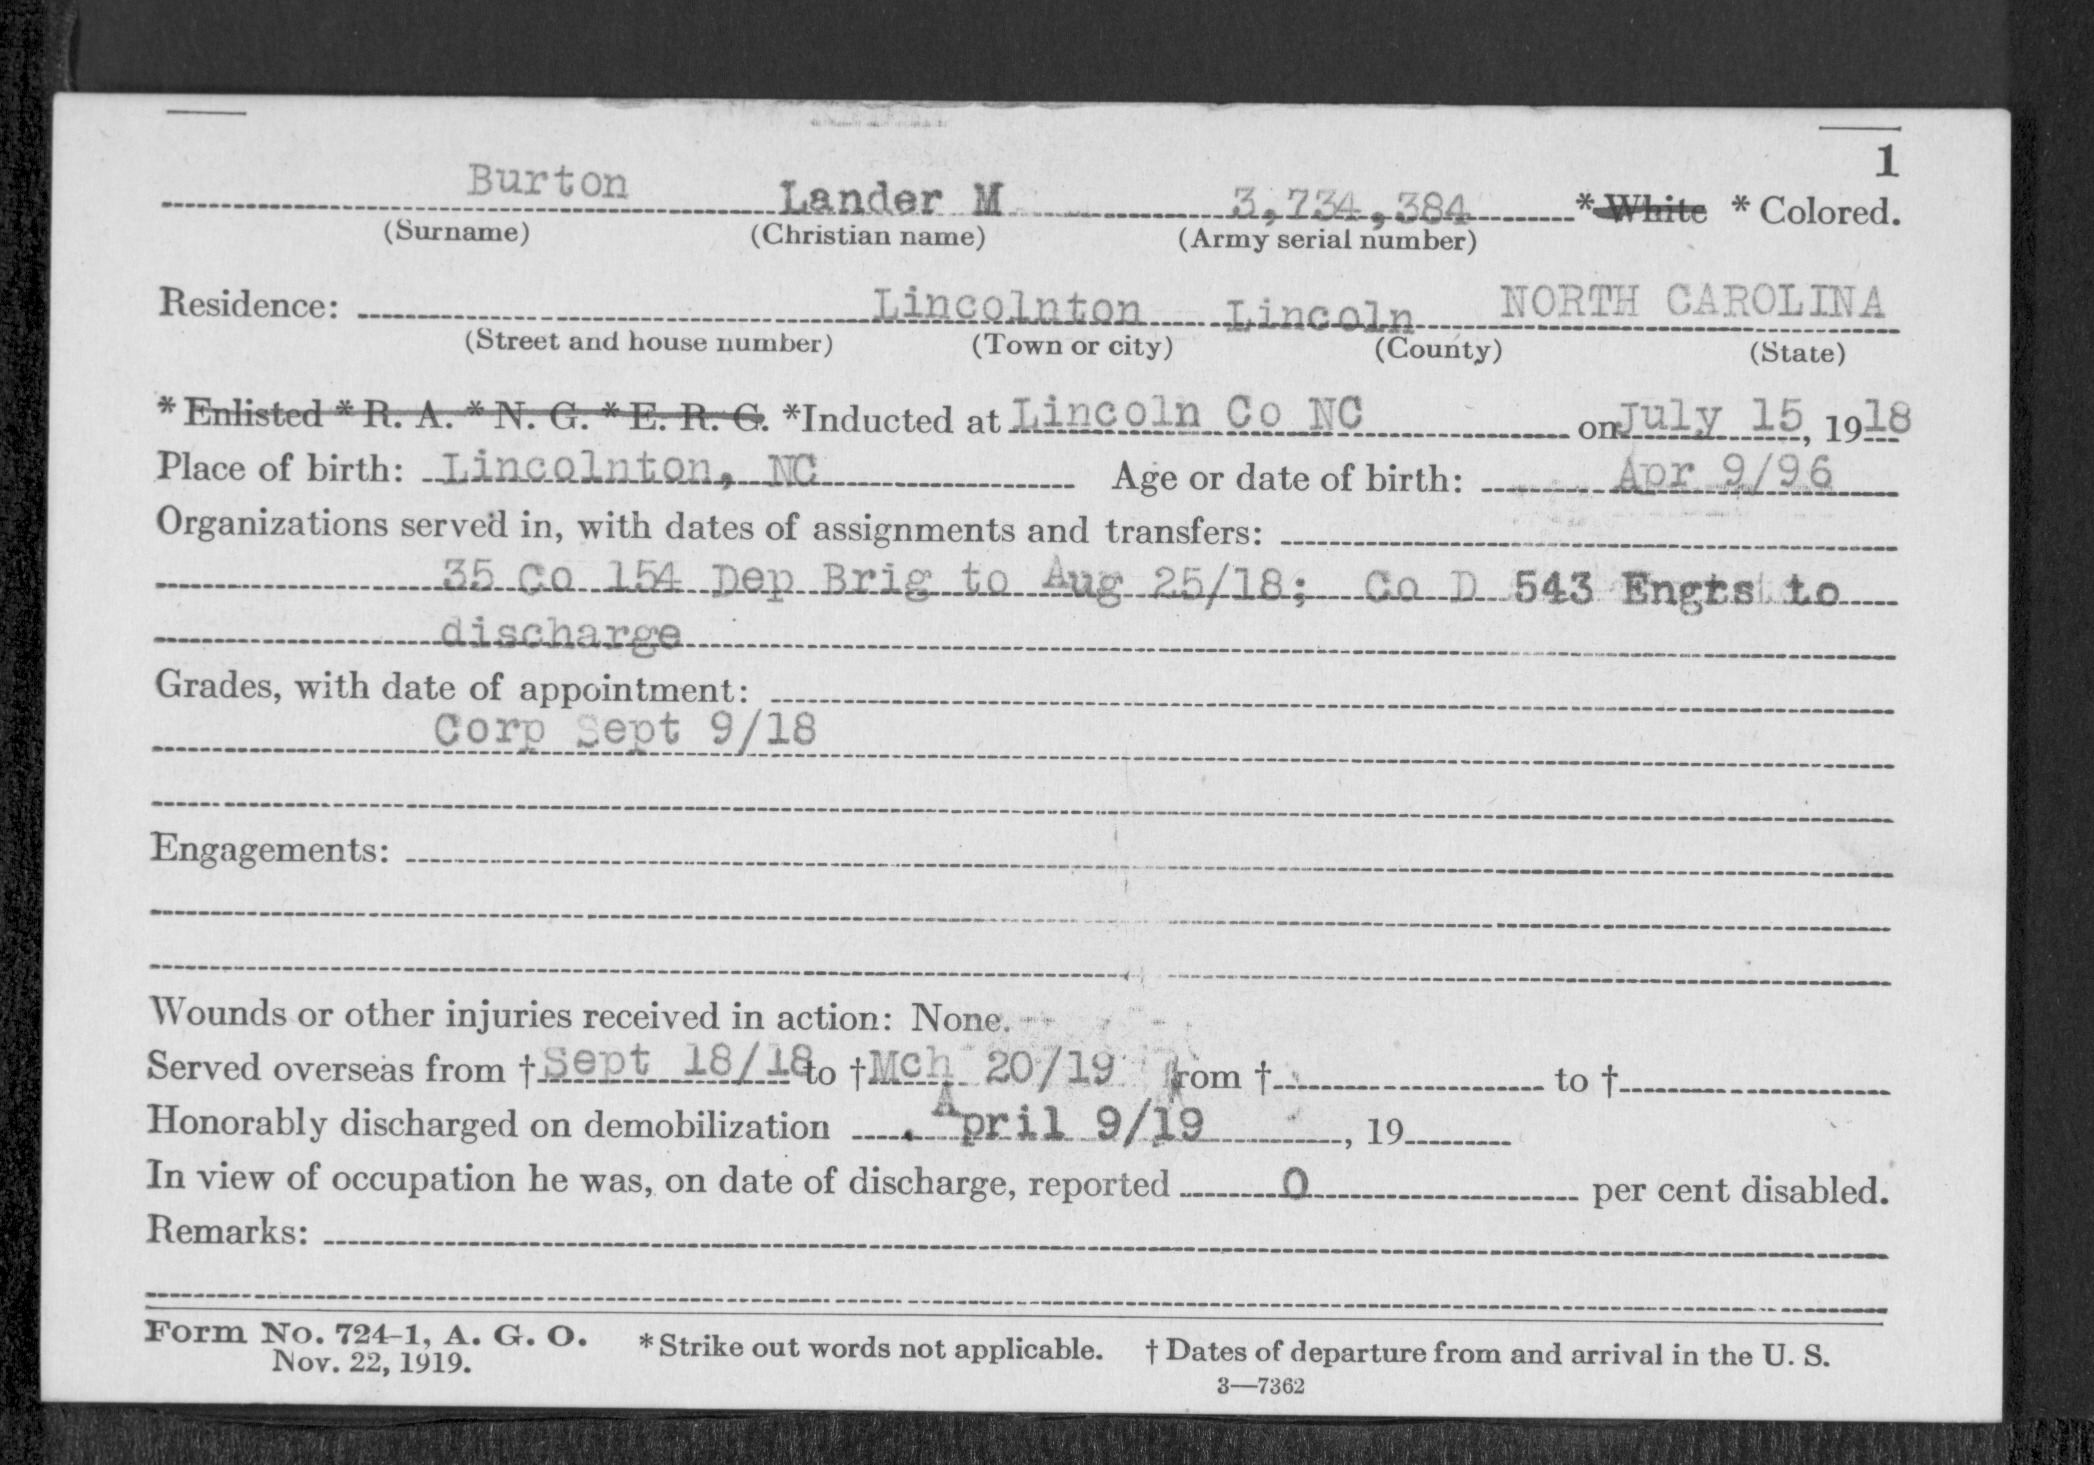 1
Burton Lander M 3,734,384 * White * Colored.
(Surname) (Christian name) (Army serial number)
Residence: Lincolnton Lincoln NORTH CAROLINA
(Street and house number) (Town or city) (County) (State)
* Enlisted * R. A. * N. G. * E. R. C. *Inducted at Lincoln Co NC on July 15, 1918
Place of birth: Lincolnton, NC Age or date of birth: Apr 9/96
Organizations served in, with dates of assignments and transfers:
35 Co 154 Dep Brig to Aug 25/18; Co D 543 Engrs to
discharge
Grades, with date of appointment:
Corp Sept 9/18
Engagements:
Wounds or other injuries received in action: None.
Served overseas from † Sept 18/18 to † Mch 20/19 from † to †
Honorably discharged on demobilization April 9/19, 19
In view of occupation he was, on date of discharge, reported 0 per cent disabled.
Remarks:
Form No. 724-1, A. G. O. * Strike out words not applicable. † Dates of departure from and arrival in the U. S.
Nov. 22, 1919.
3—7362